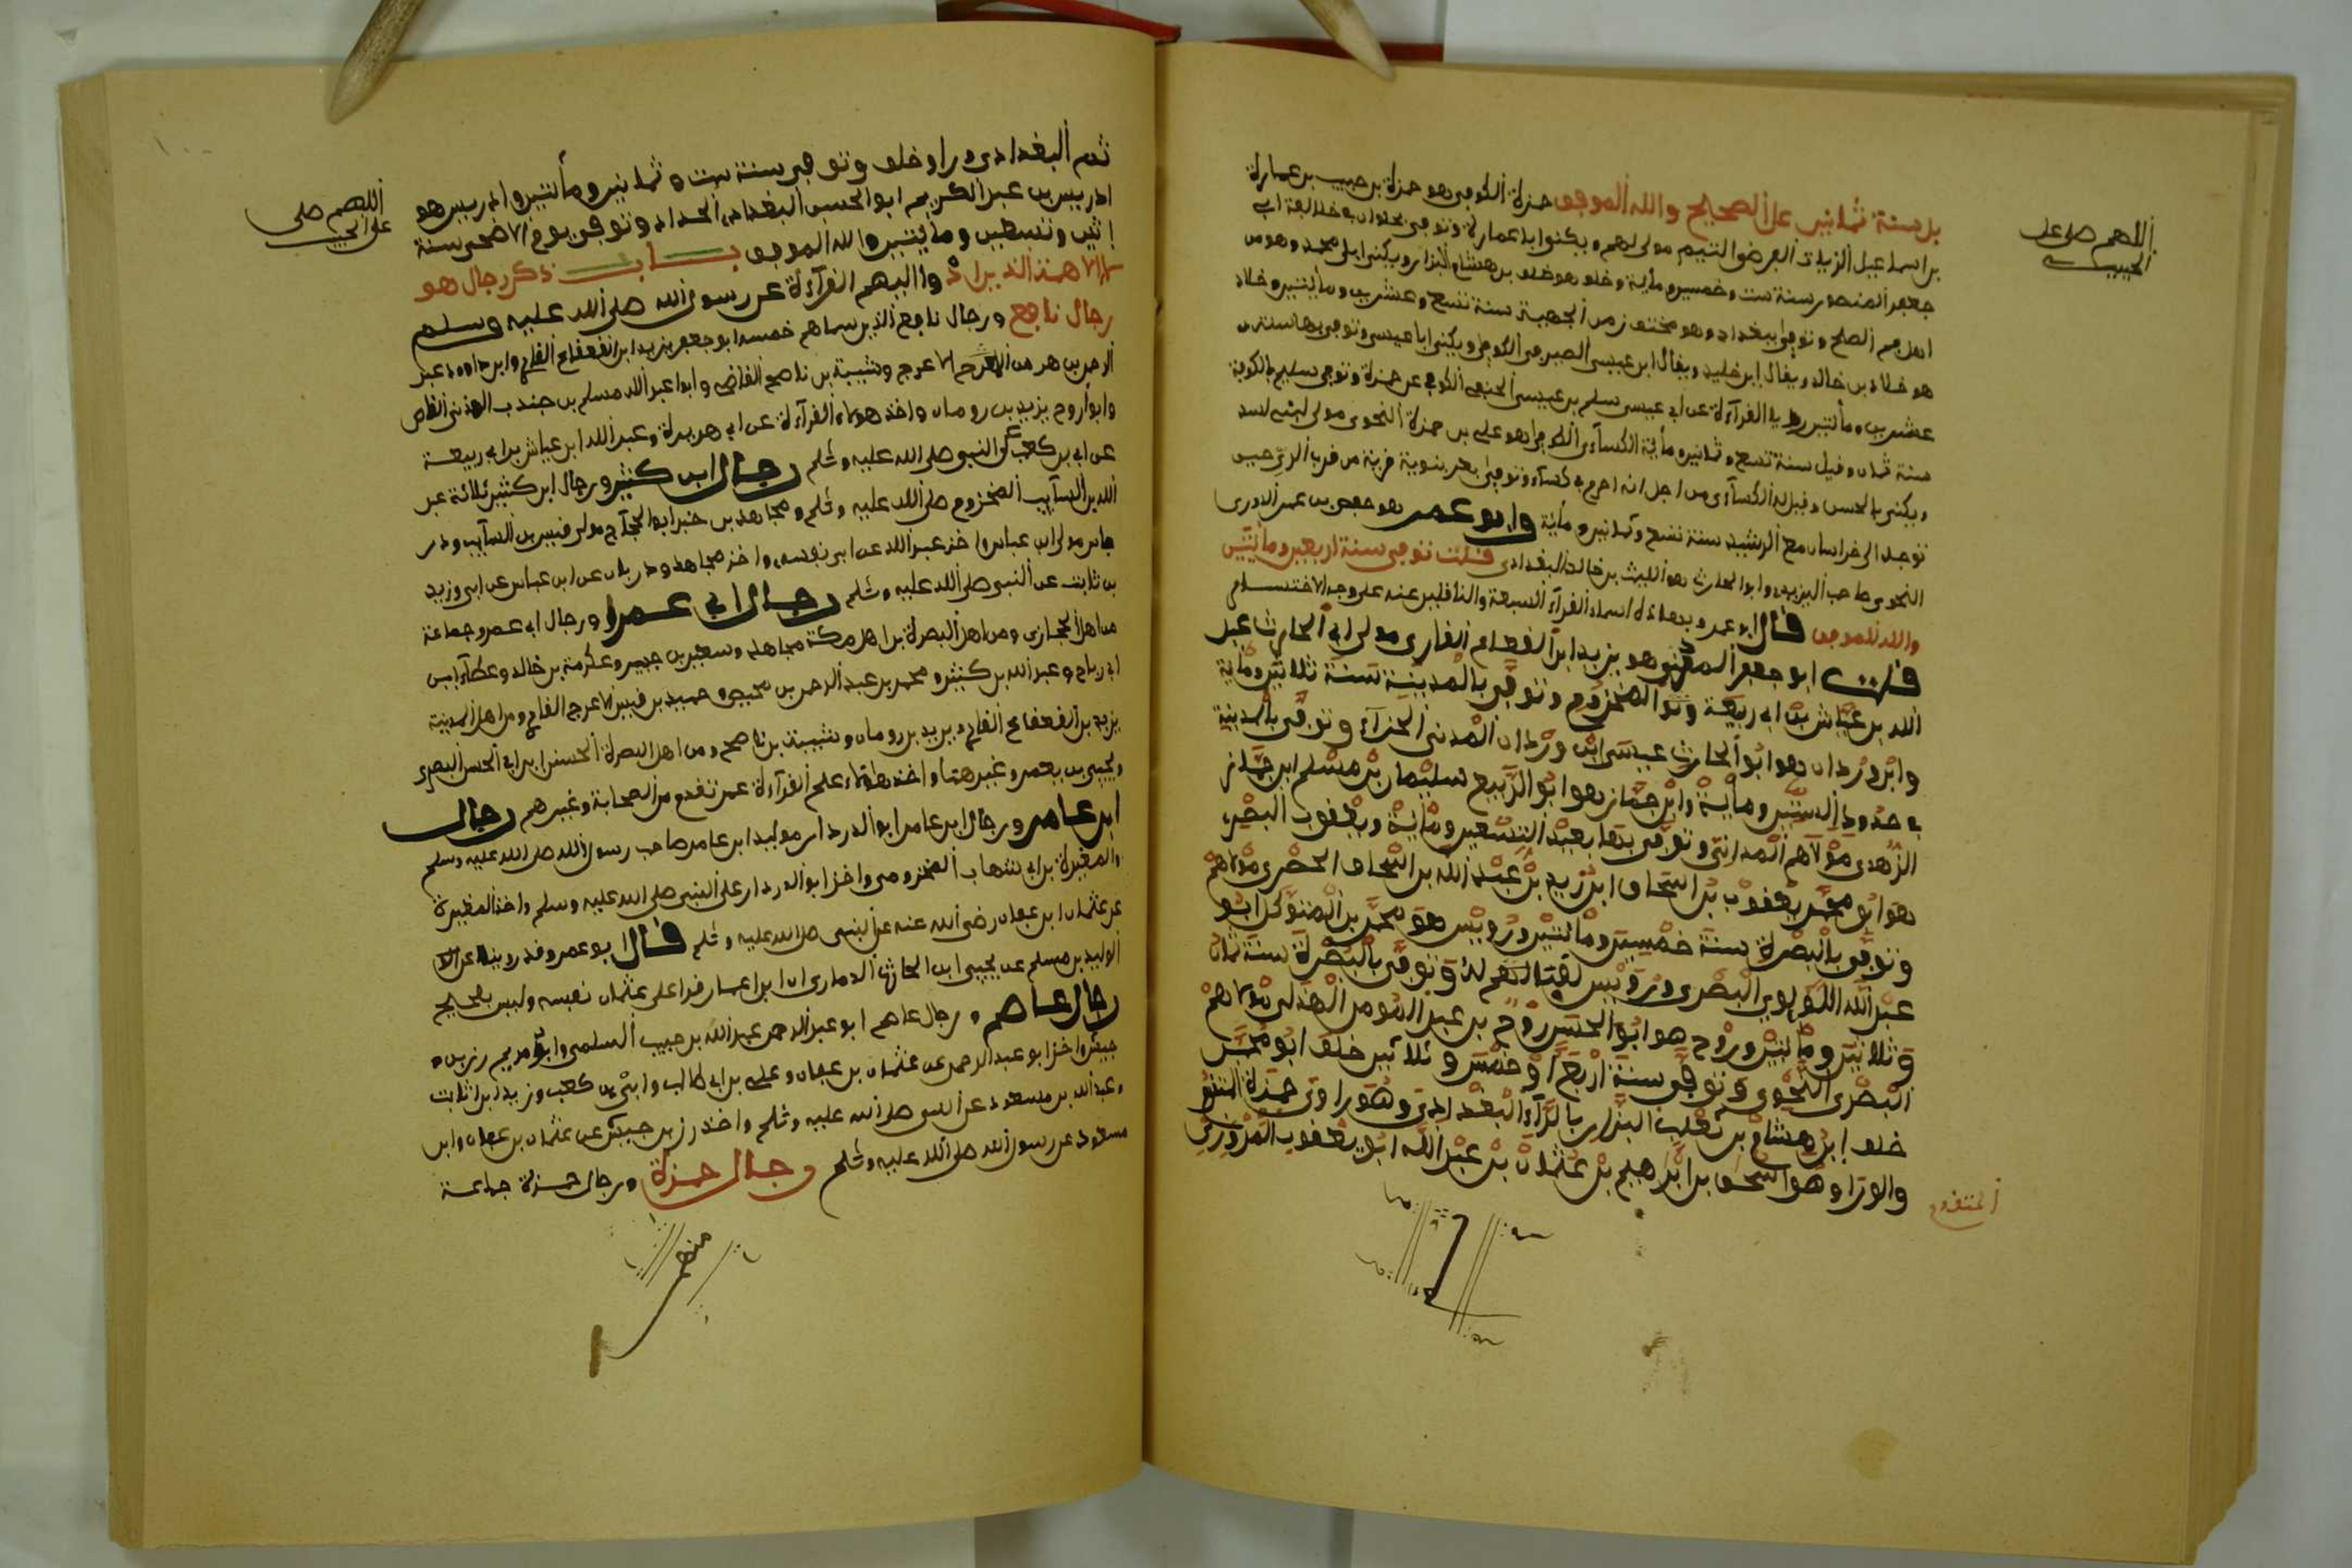 اللهم صل على
الحبيب
بل سنة ثمانين على الصحيح والله الموفق حمزة الكوفي هو حمزة بن حبيب بن عمارة
بن اسماعيل الزيات الفرضي التيمم مولى لهم ويكنوا ابا عمارة وتوفي بحلوان في خلافة ابي
جعفر المنصور سنة ست وخمسين ومائة وخلف هو خلف بن هشام البزار ويكنى ابا محمد وهو من
اهل فم الصلح وتوفي ببغداد وهو مختف زمن الجهمية سنة تسع وعشرين ومائتين وخلاد
هو خلاد بن خالد ويقال ابن خليد ويقال ابن عيسى الصيرفي الكوفي ويكنى ابا عيسى وتوفي بها سنة
عشرين ومائتين رويا القراءة عن ابي عيسى سليم بن عيسى الحنفي الكوفي عن حمزة وتوفي سليم بالكوفة
سنة ثمان وقيل سنة تسع وثمانين ومائة الكسآءي الكوفي هو علي بن حمزة النحوي مولى لبني اسد
ويكنى بالحسن وقيل له الكسآءي من اجل انه احرم في كسآء وتوفي برنبوية قرية من قرى الري حين
توجه الى خراسان مع الرشيد سنة تسع وثمانين ومائة وابو عمر هو حفص بن عمر الدوري
النحوي صاحب اليزيدي وابو الحارث هو الليث بن خالد البغدادي قلت توفي سنة اربعين ومائتين
والله الموفق قال ابو عمرو فهاءذه اسماء القرآء السبعة والناقلين عنه على وجه الاختصار
قلت ابو جعفر المدني هو يزيد ابن القعقاع القاري مولى ابي الحارث عبد
الله بن عياش بن ابي ربيعة المخزوم وتوفي بالمدينة سنة ثلاثين ومائة
وابن وردان هو ابو الحارث عيسى ابن وردان المدني الحذآء وتوفي بالمدينة
في حدود الستين ومائة وابن جماز هو ابو الربيع سليمان بن مسلم ابن جماز
الزهدي مولاهم المداني وتوفي بها بعيد التسعين ومائة ويعقوب البصري
هو ابو محمد يعقوب بن اسحاق ابن زيد بن عبد الله بن اسحاق الحضري مولاهم
وتوفي بالبصرة سنة خمسين ومائتين ورويس هو محمد بن المتوكل ابو
عبد الله اللؤلوي البصري ورويس لقب له وتوفي بالبصرة سنة ثمان
وثلاثين ومائتين وروح هو ابو الحسن روح بن عبد المومن الهذلي مولاهم
البصري النحوي وتوفي سنة اربع او خمس وثلاثين خلف ابو محمد
خلف ابن هشام بن ثعلب البزار بالرآء البغدادي وهو راوي حمزة المتقدم
والوراق وهو اسحق بن ابراهيم بن عثمان بن عبد الله ابو يعقوب المروزي
المتقدم
اللهم صلى
على الحبيب
ثم البغدادي وراو خلف وتوفي سنة ست وثمانين ومأتين وادريس هو
ادريس بن عبد الكريم ابو الحسن البغدادي الحداد وتوفي يوم الاضحى سنة
إثنين وتسعين ومائتين والله الموفق باب ذكر رجال هو
لاء الاءمة الذين ادوا اليهم القرآءة عن رسول الله صلى الله عليه وسلم
رجال نافع ورجال نافع الذين سماهم خمسة ابو جعفر يزيد ابن القعقاع القارئ وابو داوود عبد
الرحمن بن هرمز الاعرج وشيبة بن ناصح القاضي وابو عبد الله مسلم بن جندب الهذلي القاص
وابو روح يزيد بن رومان واخذ هولاء القرآءة عن ابي هريرة وعبد الله ابن عياش بن ابي ربيعة
عن ابي بن كعب عن النبي صلى الله عليه وسلم رجال ابن كثير ورجال ابن كثير ثلاثة عبد
الله بن السآيب المخزوم صلى الله عليه وسلم ومجاهد بن خبر ابو الحجآج مولى قيس بن السآيب ودر
باس مولى ابن عباس واخذ عبد الله عن ابي نفسه واخذ مجاهد ودرباس عن ابن عباس عن ابي وزيد
بن ثابت عن النبي صلى الله عليه وسلم رجال ابي عمرو ورجال ابي عمرو جماعة
من اهل الحجازي ومن اهل البصرة بن اهل مكة مجاهد وسعيد بن جبير وعكرمة بن خالد وعطآء ابن
ابي رباح وعبد الله بن كثير ومحمد بن عبد الرحمن بن محيصن وحميد بن قيس الاعرج القاري ومن اهل المدينة
يزيد بن القعقاع القارئ ويزيد بن رومان وشيبة بن ناصح ومن اهل البصرة الحسن ابن ابي الحسن البصري
ويحيى بن يعمر وغيرهما واخذ هاؤلاء علم القرآءة عمن تقدم من الصحابة وغيرهم رجال
ابن عامر ورجال ابن عامر ابو الدرداء عويمر ابن عامر صاحب رسول الله صلى الله عليه وسلم
والمغيرة بن ابي شهاب المخزومي واخذ ابو الدرداء على النبي صلى الله عليه وسلم واخذ المغيرة
عن عثمان ابن عفان رضي الله عنه عن النبي صلى الله عليه وسلم قال ابو عمرو وقد روينا عن
الوليد بن مسلم عن يحيى ابن الحارث الدماري ان ابن اعمار قرا على عثمان نفسه وليس بصحيح
رجال عاصم ورجال عاصم ابو عبد الرحمن عبد الله بن حبيب السلمي وابو مريم رزين
حبيش واخذ ابو عبد الرحمن عن عثمان بن عفان وعلي بن ابي طالب وابي بن كعب وزيد ابن ثابت
وعبد الله بن مسعود عن النبي صلى الله عليه وسلم واخذ رزين حبيش عن عثمان بن عفان وابن
مسعود عن رسول الله صلى الله عليه وسلم رجال حمزة ورجال حمزة جماعة
منهم